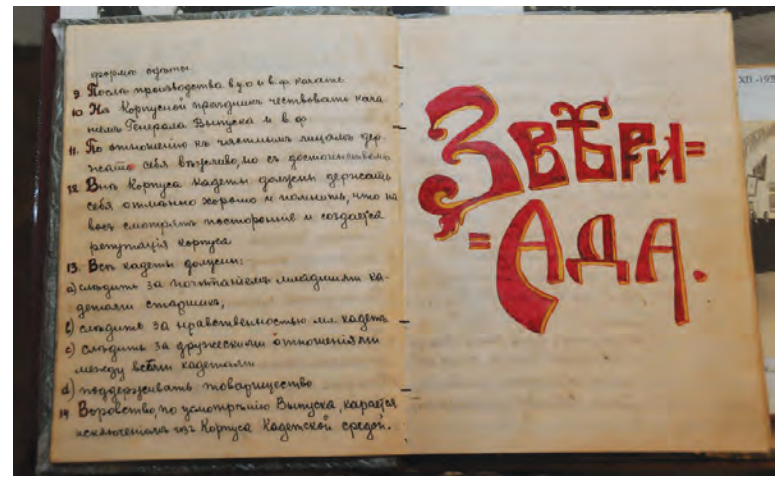 формы одѣты.
9. Послѣ производства в у.о и в. ф. качате
10 На Корпусной праздникъ чествовать кача
ніемъ Генерала Выпуска и в. ф
11. По отношенію къ частнымъ лицамъ дер-
жать себя вѣжливо, но съ достоинствомъ
12. Внѣ Корпуса кадеты должны держать
себя отманно хорошо и помнить, что на
восъ смотрятъ посторонніе и создается
репутація корпуса
13. Всѣ кадеты должны:
a) слѣдить за почитаніемъ младшими ка-
детами старшихъ,
b) слѣдить за нравственностью мл. кадетъ
c) слѣдить за дружескими отношеніями
между всѣми кадетами
d) поддерживать товарищество
14 Воровство, по усмотрѣнію Выпуска, карается
исключеніемъ изъ Корпуса Кадетской средой.
ЗВѢРИ=
=АДА.